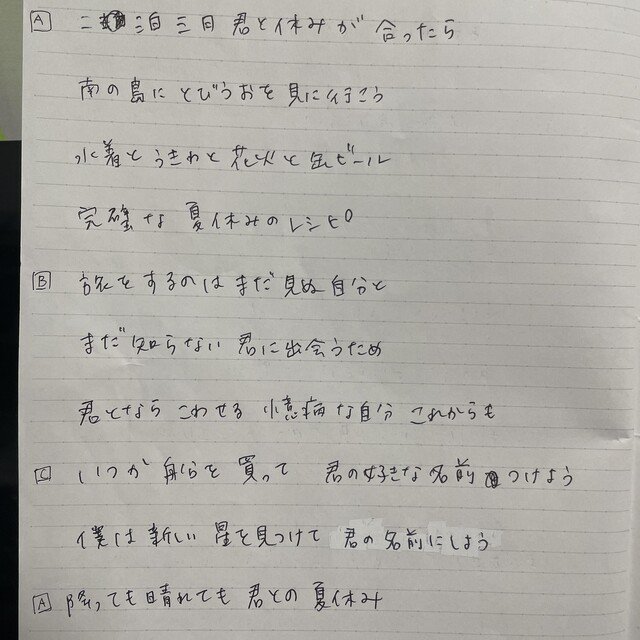 A 二泊三日 君と休みが 合ったら
南の島に とびうおを 見に行こう
水着と うきわと 花火と 缶ビール
完璧な 夏休みのレシピ
B 旅をするのは まだ見ぬ自分と
まだ知らない 君に出会うため
君となら こわせる 臆病な自分 これからも
C いつか 船を 買って 君の好きな名前 つけよう
僕は新しい 星を見つけて 君の名前にしよう
A 降っても晴れても 君との 夏休み